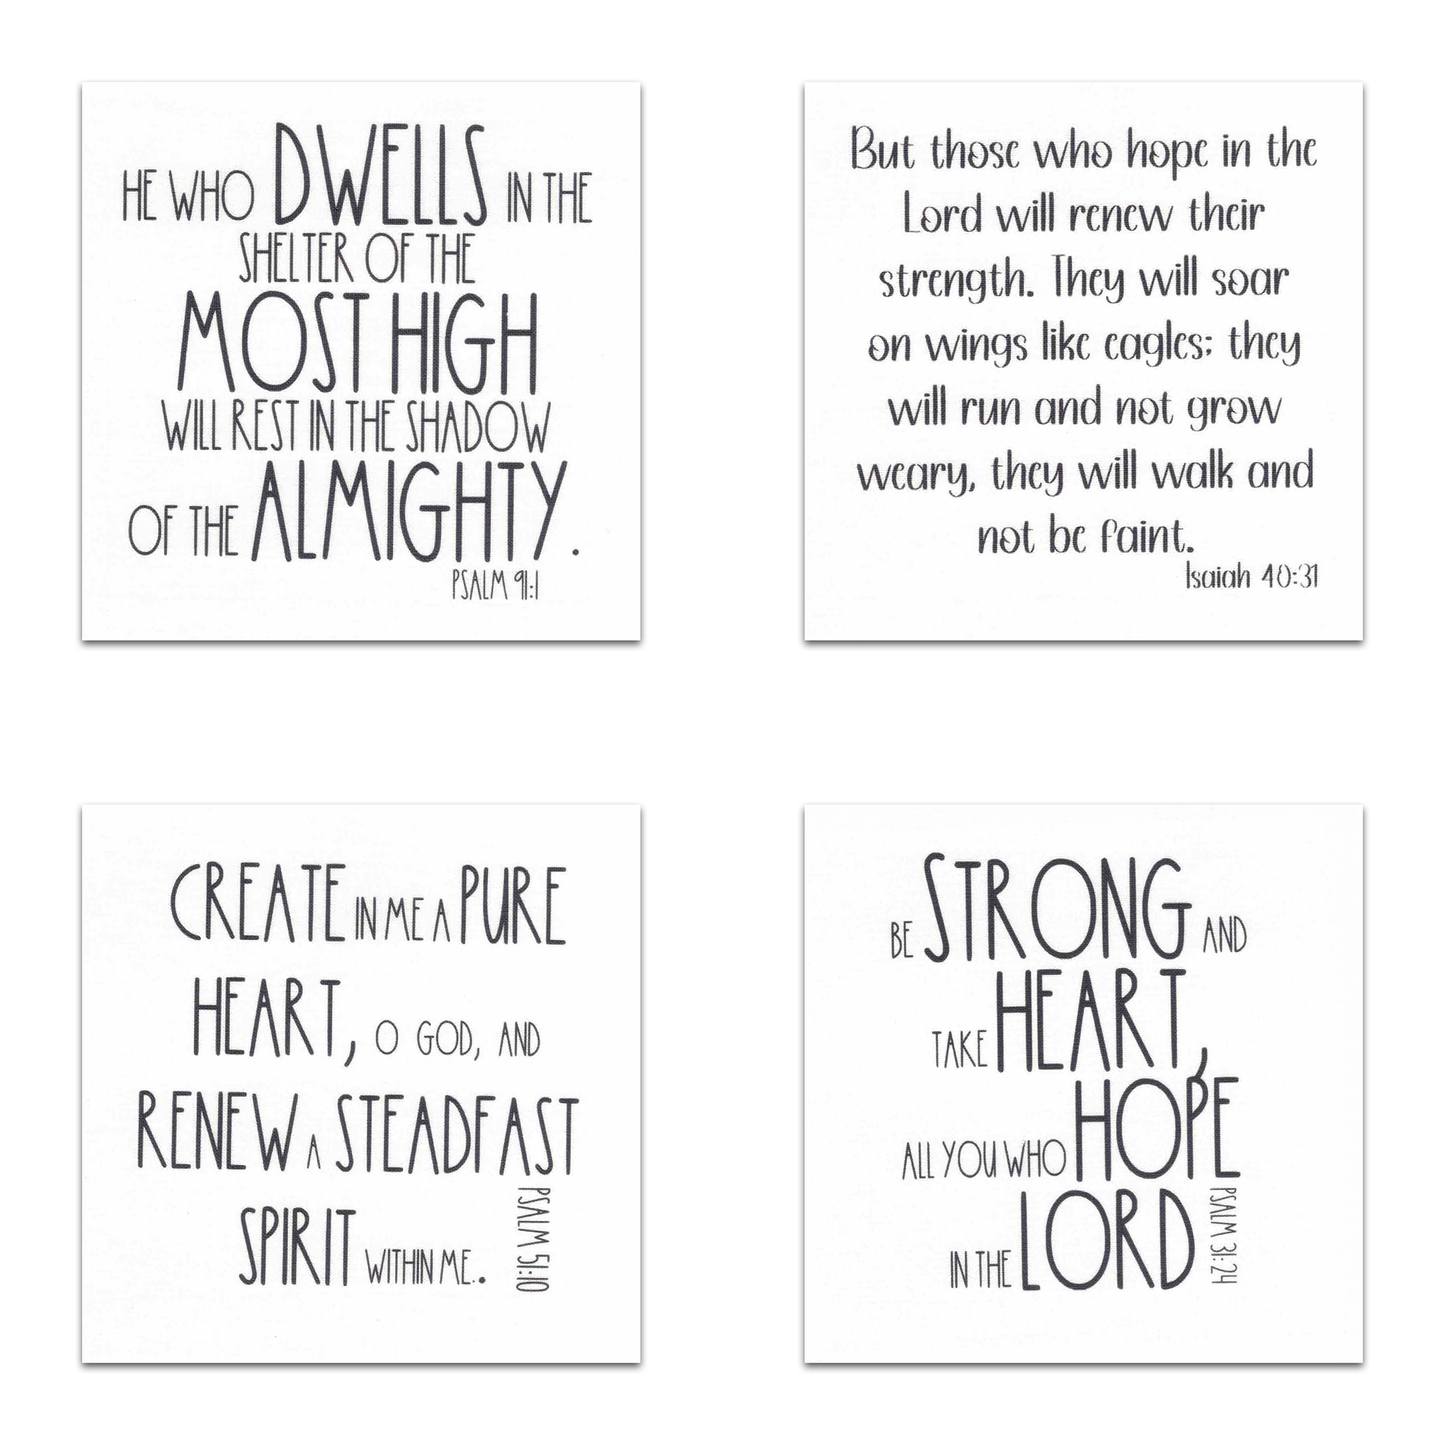 HE WHO DWELLS IN THE
SHELTER OF THE
MOST HIGH
WILL REST IN THE SHADOW
OF THE ALMIGHTY.
PSALM 91:1
But those who hope in the
Lord will renew their
strength. They will soar
on wings like eagles; they
will run and not grow
weary, they will walk and
not be faint.
Isaiah 40:31
CREATE IN ME A PURE
HEART, O GOD, AND
RENEW A STEADFAST
SPIRIT WITHIN ME..
PSALM 51:10
BE STRONG AND
TAKE HEART,
ALL YOU WHO HOPE
IN THE LORD
PSALM 31:24